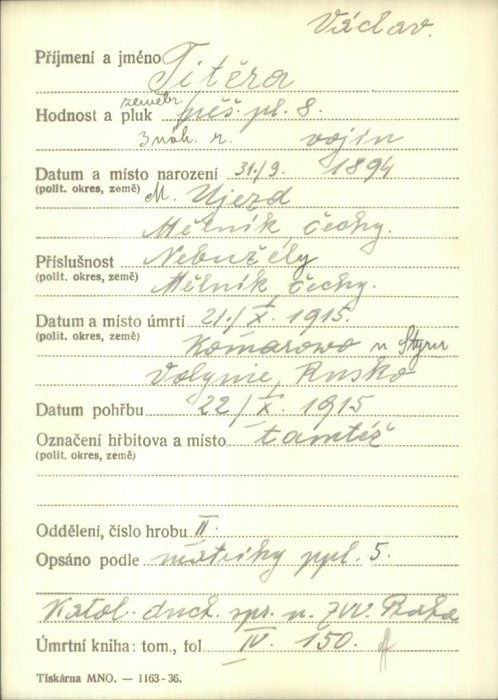 Václav.
Příjmení a jméno Titěra
zeměbr.
Hodnost a pluk pěš. pl. 8.
vojín
Datum a místo narození 31./9. 1894
(polit. okres, země) M. Ujezd
Mělník, Čechy.
Příslušnost Nebužely
(polit. okres, země) Mělník, Čechy.
Datum a místo úmrtí 21./X. 1915.
(polit. okres, země) Komarowo u Styru
Volynie, Rusko
Datum pohřbu 22/X. 1915
Označení hřbitova a místo tamtéž
(polit. okres, země)
Oddělení, číslo hrobu II.
Opsáno podle matriky ppl. 5.
Katol. duch. spr. u ZVV. Praha
Úmrtní kniha: tom., fol IV. 150.
Tiskárna MNO. — 1163-36.